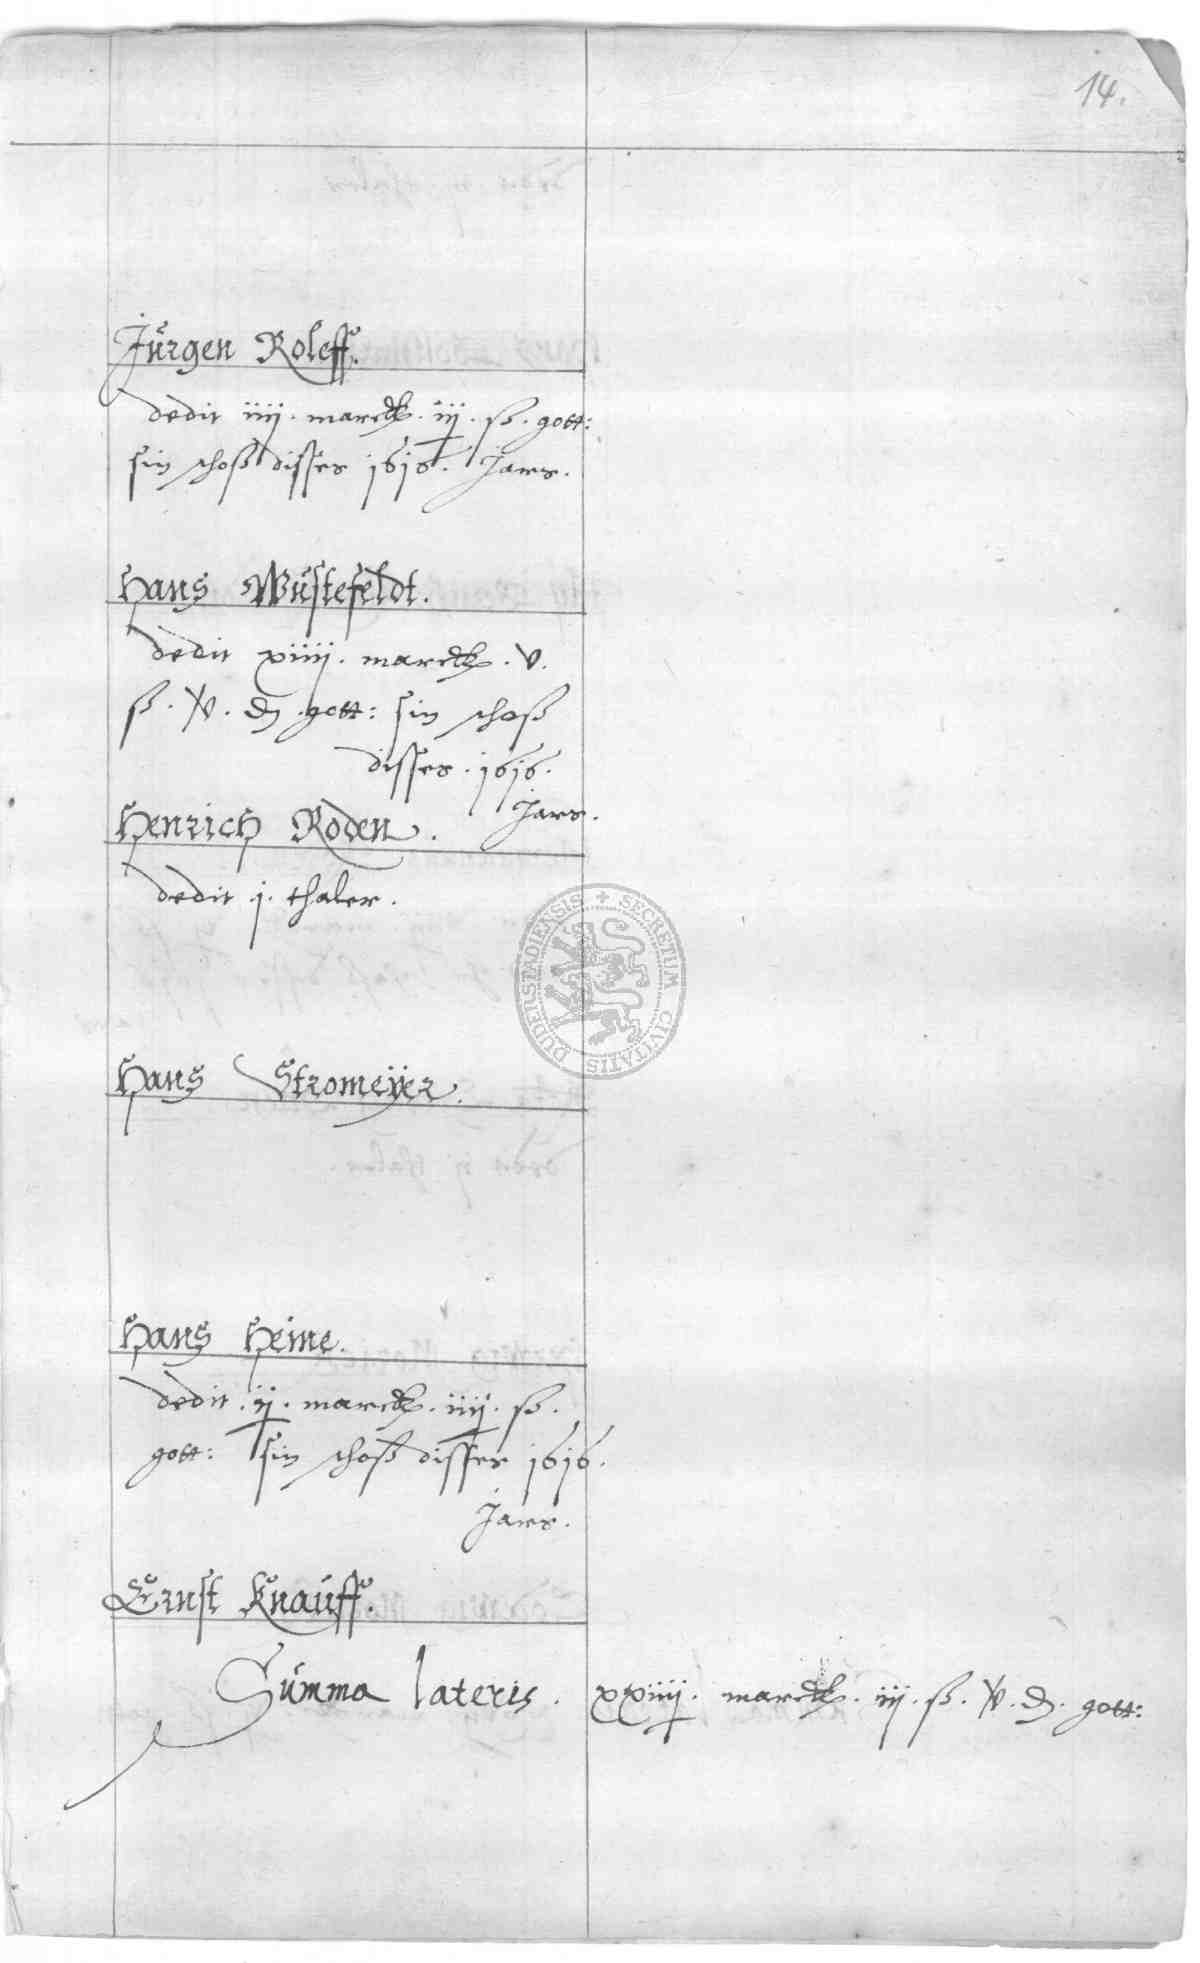 14.
Jürgen Roleff.
dedit iiij. marck. iij. ß. gott:
sin schoß disses 1616. Jars.
Hans Wüstefeldt.
dedit xiiij. marck. v.
ß. v. d. gott: sin schoß
disses. 1616.
Jars.
Henrich Roden.
dedit j. thaler.
SECRETUM CIVITATIS DUDERSTADIENSIS
Hans Stromeÿer.
Hans Heine.
dedit. ij. marck. iiij. ß.
gott: sin schoß disses 1616.
Jars.
Ernst Knauff.
Summa lateris. xxiiij. marck. iij. ß. v. d. gott: